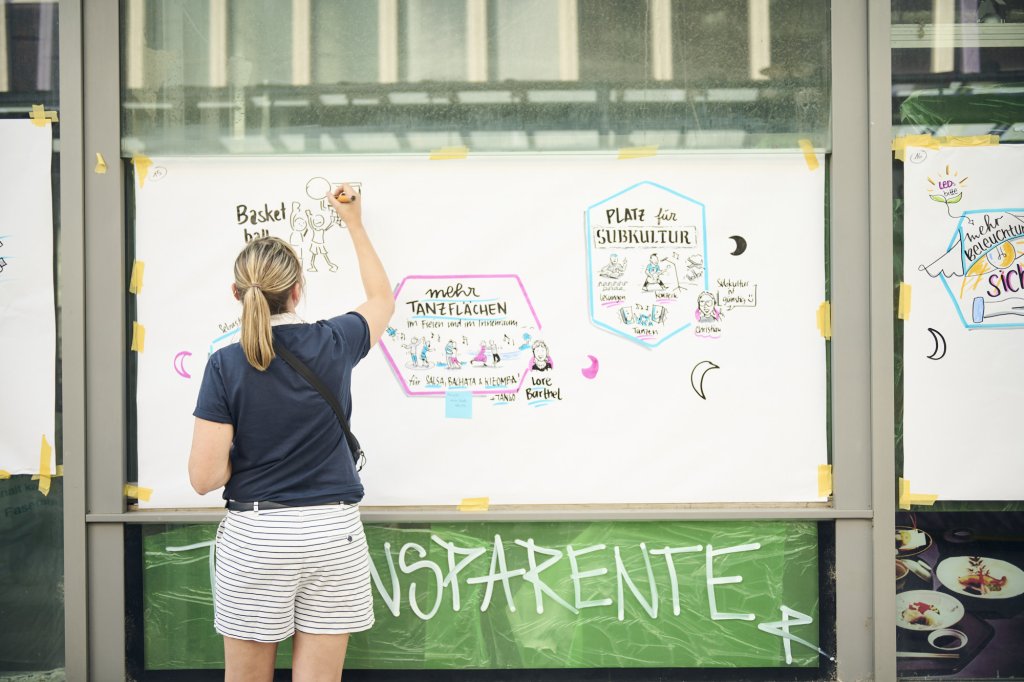 Basket
ball
mehr
TANZFLÄCHEN
im Freien und im Trockenraum
für SALSA, BACHATA & KIZOMBA!
+ TANGO
Lore
Barthel
PLATZ für
SUBKULTUR
Lesungen
Konzerte
Tanzen
Christian
Subkultur
ist
LEDs
bitte
mehr
Beleuchtun
sich
NSPARENTE